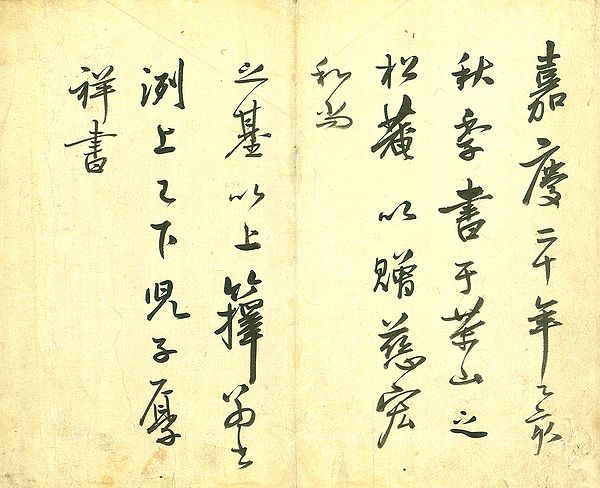 嘉慶二十年乙亥
秋季書于茶山之
松菴以贈慈宏
和尚
之基以上籜
洌上乙下兒子厚
祥書